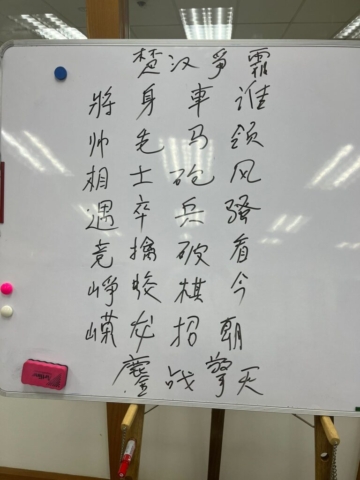 楚汉爭霜
將帅相遇竞峥嵘
身先士卒擒蛟龙
車马砲兵破棋招
谁领风骚看今朝
鏖战擎天